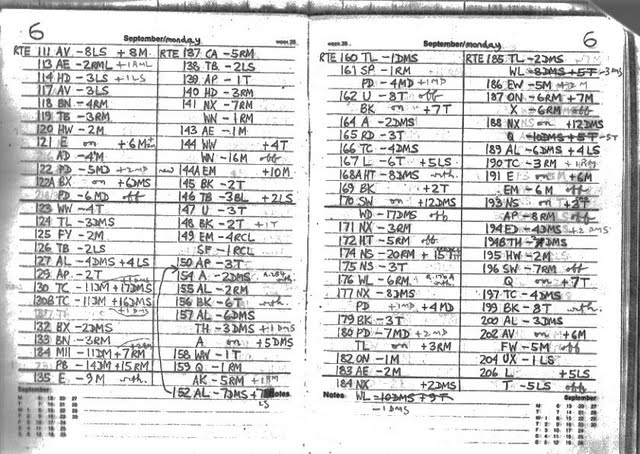 6
September/monday
week 36
RTE 111 AV -8LS +8M
113 AE -2RML +1RML
114 HD -3LS +1LS
117 AV -3LS
118 BN -4RM
119 TB -3RM
120 HW -2M
121 E on +6M
AD -4M
122 PD -5MD +2MD
122A BX on +6DMS
PD -6MD off
123 WW -4T
124 TL -3DMS
125 FY -2M
126 TB -2LS
127 AL -4DMS +4LS
129 AP -2T
130 TC -11DM +17DMS
130B TC -11DM +16DMS
+1DMS
132 BX -2DMS
133 BN -3RM
134 MH -11DM +7RM
PB -14DM +15RM
135 E -9M wth.
RTE 137 CA -5RM
138 TB -2LS
139 AP -1T
140 HD -3RM
141 NX -7RM
WN -1RM
143 AE -1M
144 WW +4T
WN -16M off
new 144A EM +10M
145 BK -2T
146 TB -3BL +2LS
147 U -3T
148 BK -2T +1T
149 EM -4RCL
SF -1RCL
150 AP -3T
154 A -2DMS
155 AL -2RM
156 BK -6T wth.
157 AL -6DMS
TH -3DMS +1DMS
A on +5DMS
158 WW -1T
159 Q -1RM
AK -5RM
152 AL -7DMS
LS
Notes
September
6
September/monday
RTE 160 TL -1DMS
161 SP -1RM
PD -4MD +1MD
162 U -8T off
BK on +7T
164 A -2DMS
165 RD -3T
166 TC -4DMS
167 L -6T +5LS
168A HT -8DMS wth.
169 BK +2T
170 SW on +12DMS
WD -17DMS off
171 NX -3RM
172 HT -5RM off
174 NS -20RM +15
175 NS -3T
176 WL -6RM wth.
177 NX -8DMS
PD +1MD +4MD
179 BK -3T
180 PD -7MD +2MD
TL on +3RM
182 ON -1M
183 AE -2M
184 NX +2DMS
Notes WL -10DMS +9T
-1DMS
RTE 185 TL -2DMS
WL -8DMS +5T -3DMS
186 EW -5M
187 ON -6RM +7M
X -6RM off
188 NX on +12DMS
Q -10DMS +5T
189 AL -6DMS +4LS
190 TC -3RM
191 E on +6M
EM -6M off
193 NS on +3T
AP -8RM off
194 ED -4DMS +2DMS
194B TH -7DMS
195 HW -2M
196 SW -7RM off
Q on +7T
197 TC -4DMS
199 BK -8T wth.
200 AL -3DMS
202 AV on +6M
FW -5M off
204 UX -1LS
206 L +5LS
T -5LS off
September